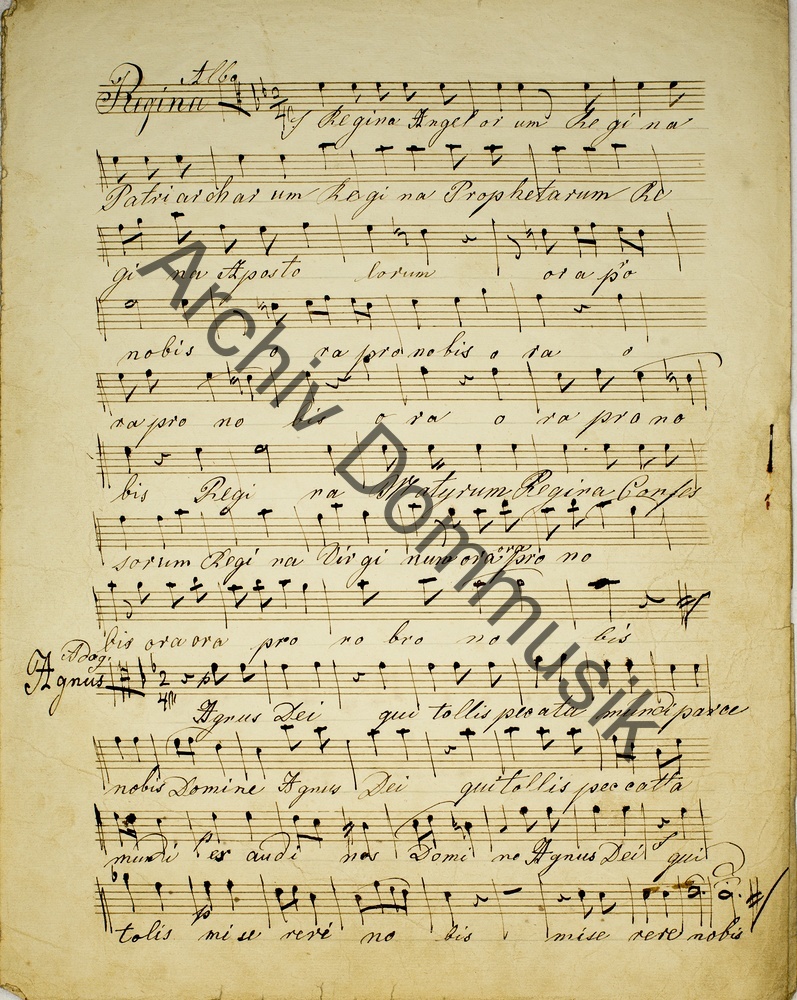 Regina Allo
Regina Angel or um Re gi na
Patri archar um Re gi na Prophetarum Re
gi na Aposto lorum ora pro
nobis o ra pro nobis o ra o
ra pro no bis o ra o ra pro no
bis Regi na Matyrum Regina Confes
sorum Regi na Vir gi num ora ora pro no
bis ora ora pro no bro no bis
Adag:
Agnus
Agnus Dei qui tollis pec ata mundi parce
nobis Domine Agnus Dei qui tollis pec catta
mundi ex audi nos Domi ne Agnus Dei qui
tolis mi se rere no bis mise rere nobis
Archiv Dommusik